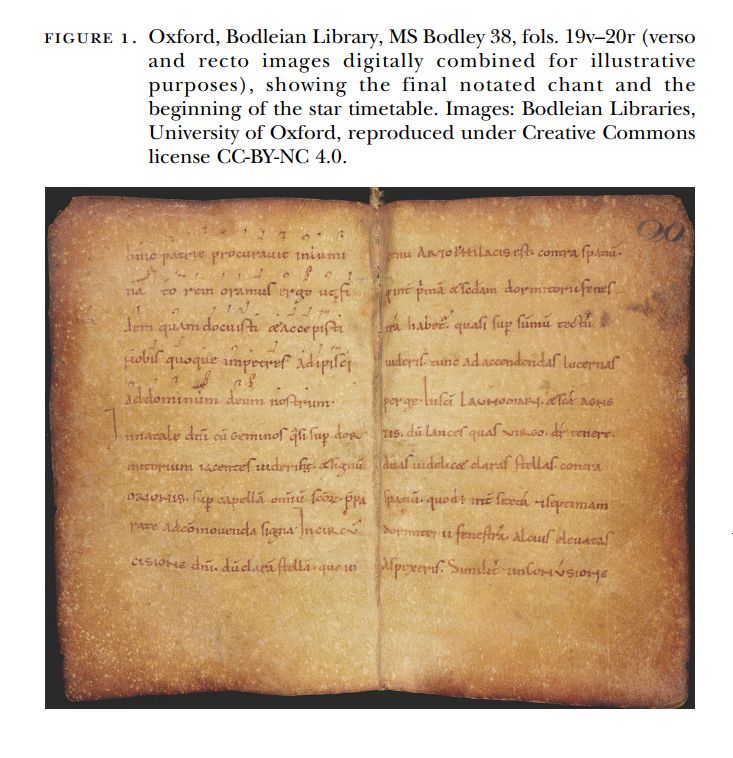 FIGURE 1. Oxford, Bodleian Library, MS Bodley 38, fols. 19v–20r (verso
and recto images digitally combined for illustrative
purposes), showing the final notated chant and the
beginning of the star timetable. Images: Bodleian Libraries,
University of Oxford, reproduced under Creative Commons
license CC-BY-NC 4.0.
hinc patrie procurauit
to rem oramus ergo
dem quam docuisti & accepisti
nobis quoque impetres adipisci
Ad dominum deum nostrum
In natale dn̄i cū Geminos q̄si sup dor
mitorium iacentes uideris & signū
ORIONIS sup capellā omiū
rate ad cōmouenda signa In CIRCŪ
CISIONE dn̄i dū clara stella que
20
ARTOPHILACIS est contra spatiū
int p̄mā & scdam dormitorii fenes
habet quasi sup sūmū tectū
uideris tunc ad accendendas lucernas
perge In LAUNOMARI & AGNE
TIS dū lances quas VIRGO tenere
duas uidelicet claras stellas contra
spatiū quod int sextā septimam
fenestrā alcius eleuatas
Aspexeris Similit in CONVSIONE